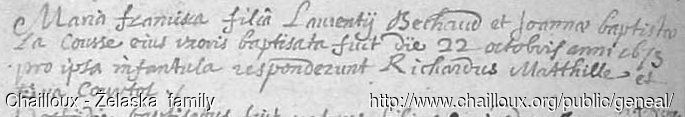 Maria francisca filia Laurentij Bechaud et Joannæ baptistæ
La Cousse eius uxoris baptisata fuit die 22 octobris anni 1673
pro ipsa infantula responderunt Richardus Matthille et
Courtot
Chailloux - Zelaska family
http://www.chailloux.org/public/geneal/